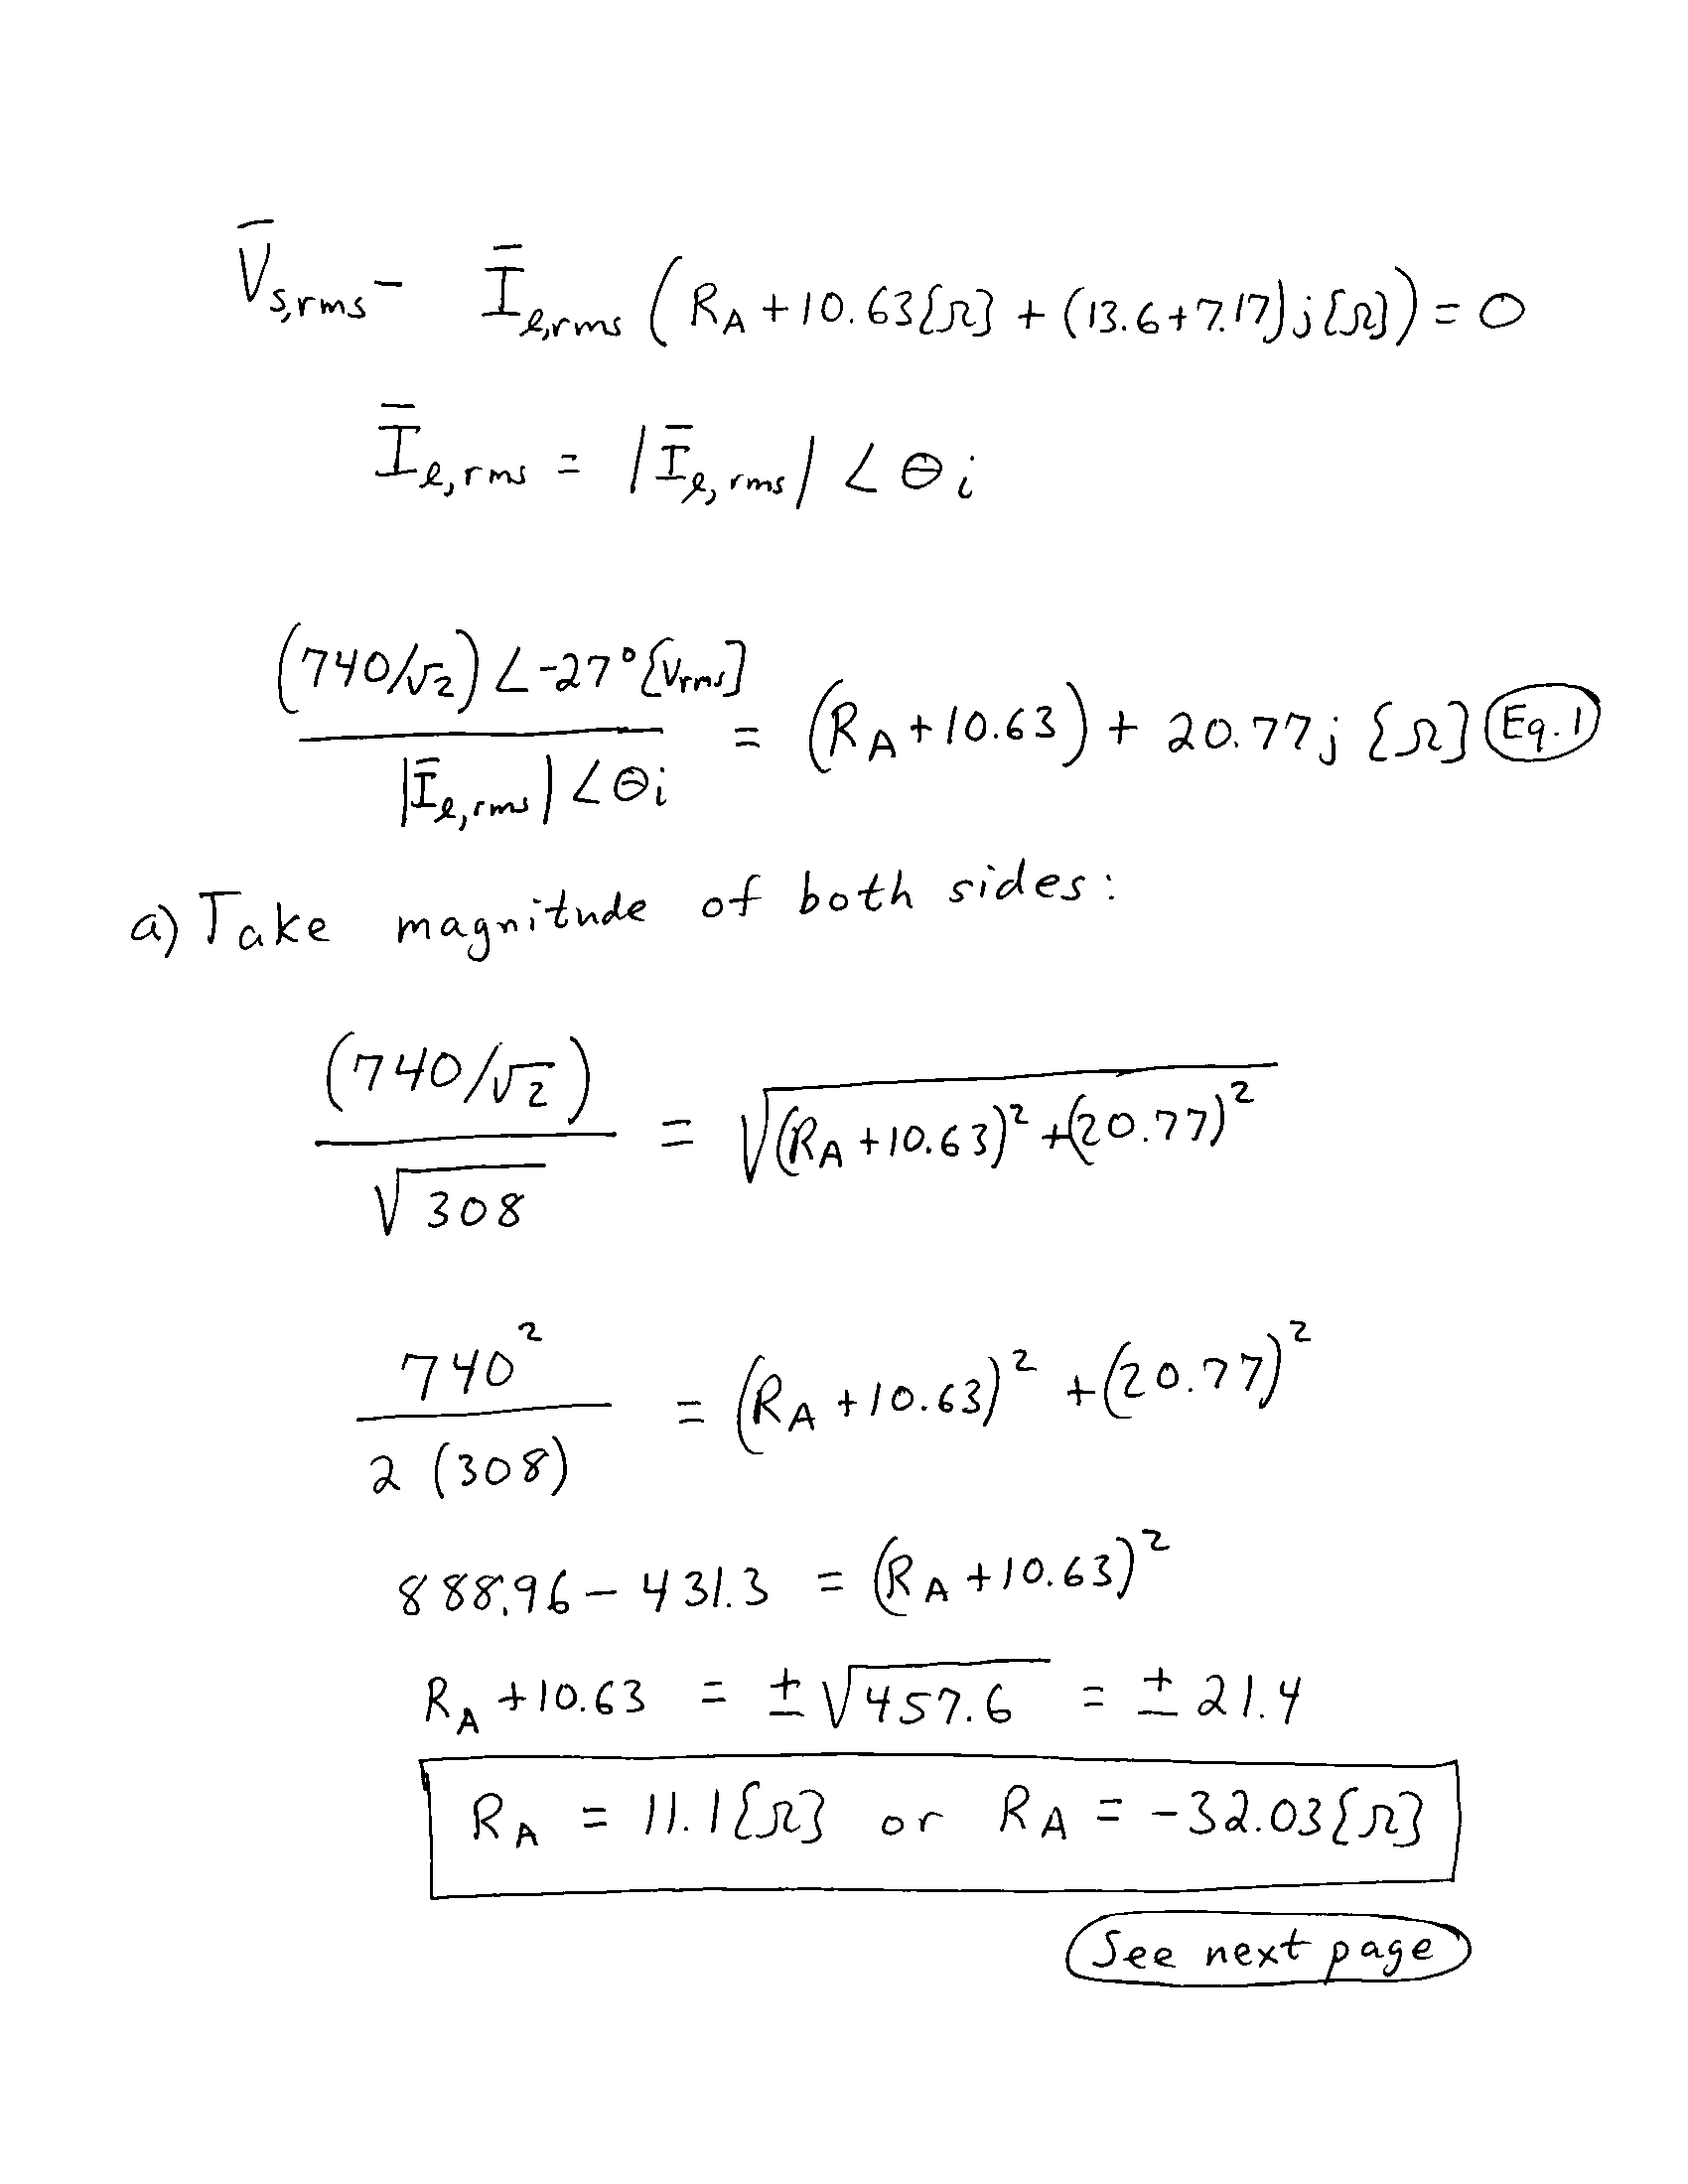 V̄s,rms - Īℓ,rms (RA + 10.63{Ω} + (13.6+7.17)j{Ω}) = 0
Īℓ,rms = |Īℓ,rms| ∠θi
(740/√2) ∠-27° [Vrms] / |Īℓ,rms| ∠θi = (RA + 10.63) + 20.77j {Ω] Eq. 1
a) Take magnitude of both sides:
(740/√2) / √308 = √((RA + 10.63)² + (20.77)²)
740² / 2 (308) = (RA + 10.63)² + (20.77)²
888.96 - 431.3 = (RA + 10.63)²
RA + 10.63 = ±√457.6 = ± 21.4
RA = 11.1{Ω} or RA = -32.03{Ω}
See next page